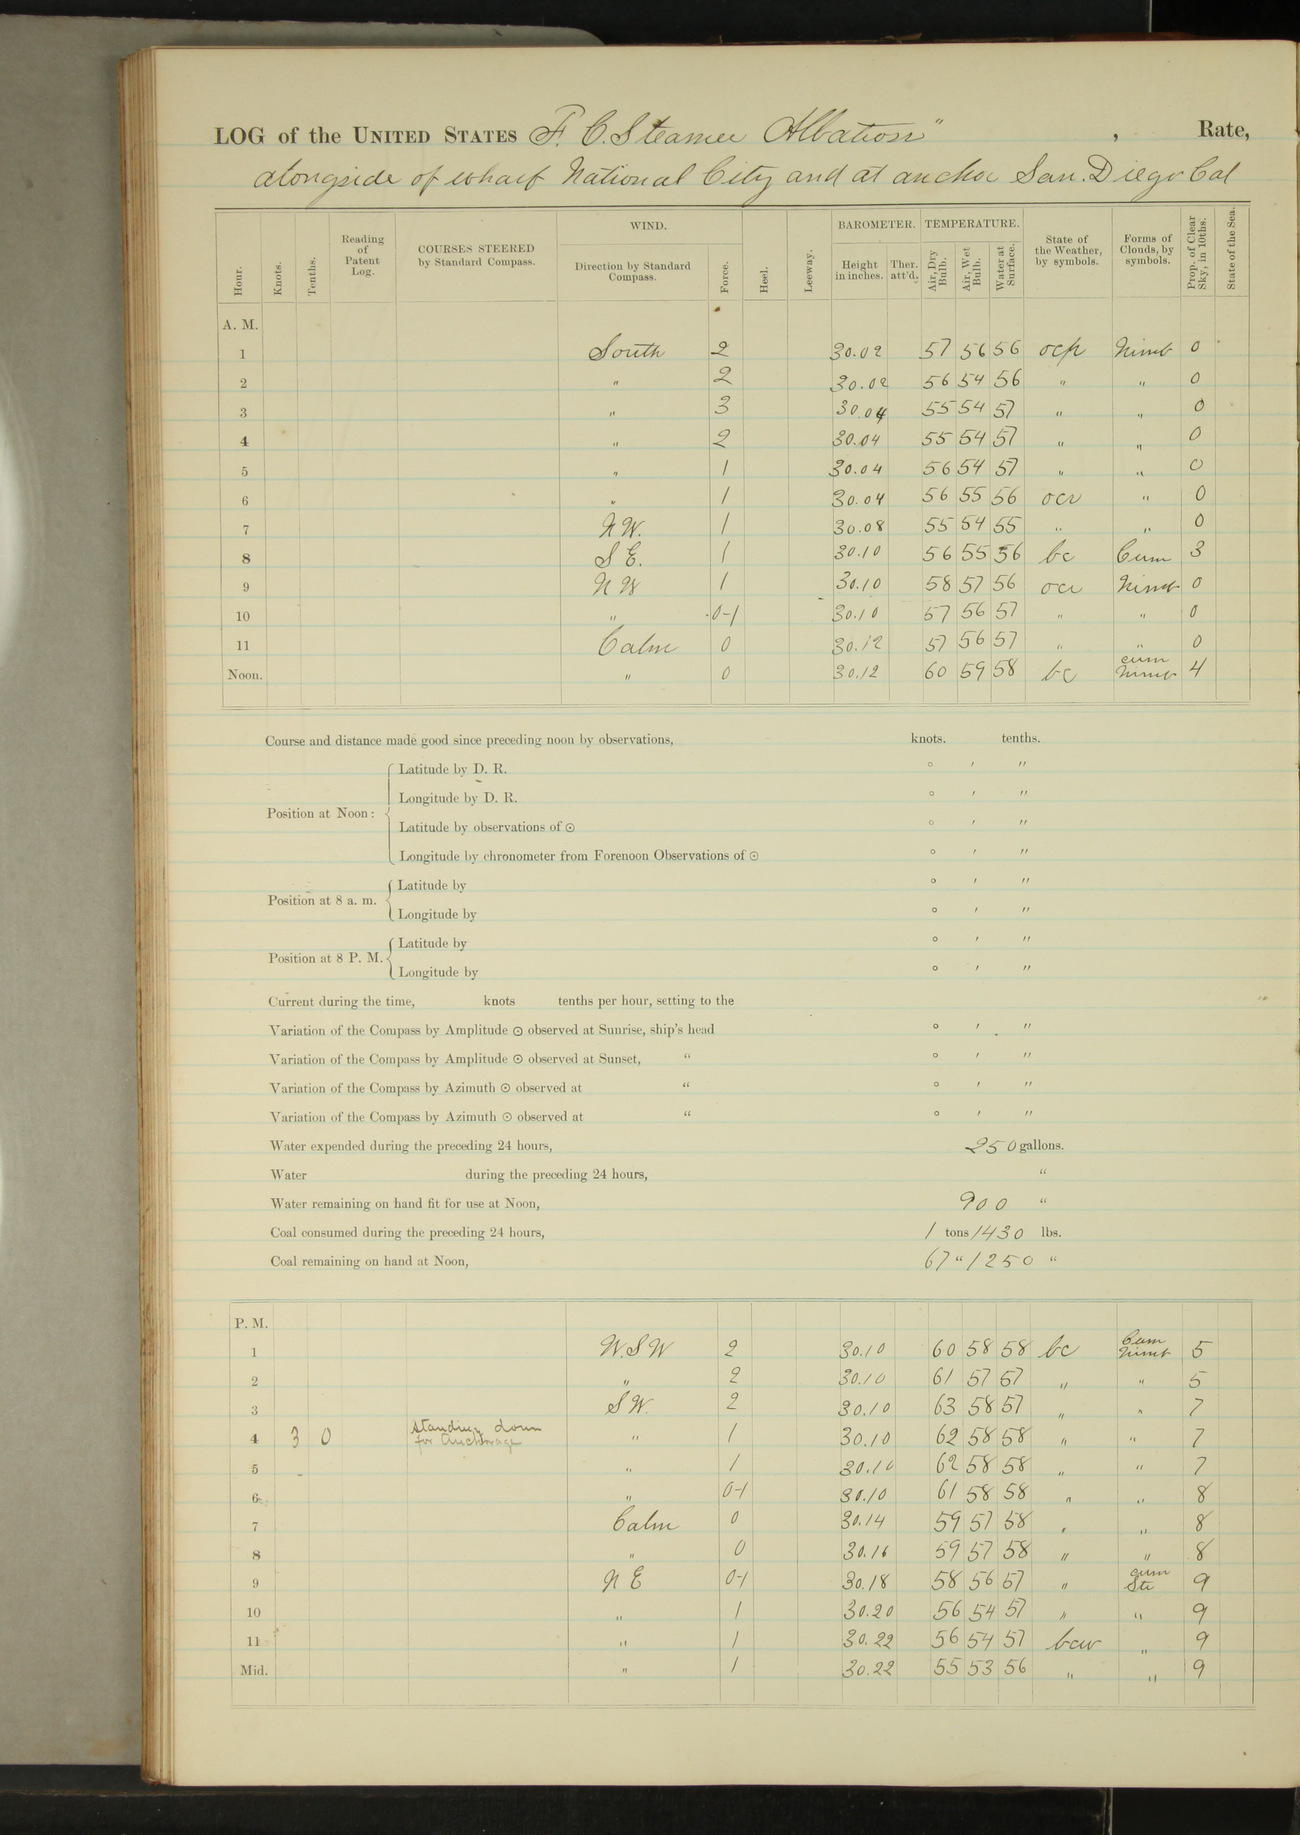 LOG of the UNITED STATES F. C. Steamer Albatross" , Rate,
alongside of wharf National City and at anchor San Diego Cal
Hour. Knots. Tenths. Reading of Patent Log. COURSES STEERED by Standard Compass. WIND. Direction by Standard Compass. Force. Heel. Leeway. BAROMETER. Height in inches. Ther. att'd. TEMPERATURE. Air, Dry Bulb. Air, Wet Bulb. Water at Surface. State of the Weather, by symbols. Forms of Clouds, by symbols. Prop. of Clear Sky, in 10ths. State of the Sea.
A. M.
1 South 2 30.02 57 56 56 ocp Nimb 0
2 " 2 30.02 56 54 56 " " 0
3 " 3 30.04 55 54 57 " " 0
4 " 2 30.04 55 54 57 " " 0
5 " 1 30.04 56 54 57 " " 0
6 " 1 30.04 56 55 56 ocr " 0
7 N W. 1 30.08 55 54 55 " " 0
8 S E. 1 30.10 56 55 56 bc Cum 3
9 N W 1 30.10 58 57 56 ocr Nimb 0
10 " 0-1 30.10 57 56 57 " " 0
11 Calm 0 30.12 57 56 57 " " 0
Noon. " 0 30.12 60 59 58 bc cum Nimb 4
Course and distance made good since preceding noon by observations, knots. tenths.
Position at Noon: Latitude by D. R. ° ′ ″
Longitude by D. R. ° ′ ″
Latitude by observations of ⊙ ° ′ ″
Longitude by chronometer from Forenoon Observations of ⊙ ° ′ ″
Position at 8 a. m. Latitude by ° ′ ″
Longitude by ° ′ ″
Position at 8 P. M. Latitude by ° ′ ″
Longitude by ° ′ ″
Current during the time, knots tenths per hour, setting to the
Variation of the Compass by Amplitude ⊙ observed at Sunrise, ship's head ° ′ ″
Variation of the Compass by Amplitude ⊙ observed at Sunset, " ° ′ ″
Variation of the Compass by Azimuth ⊙ observed at " ° ′ ″
Variation of the Compass by Azimuth ⊙ observed at " ° ′ ″
Water expended during the preceding 24 hours, 250 gallons.
Water during the preceding 24 hours, "
Water remaining on hand fit for use at Noon, 900 "
Coal consumed during the preceding 24 hours, 1 tons 1430 lbs.
Coal remaining on hand at Noon, 67 " 1250 "
P. M.
1 W.S W 2 30.10 60 58 58 bc Cum Nimb 5
2 " 2 30.10 61 57 57 " " 5
3 S W. 2 30.10 63 58 57 " " 7
4 3 0 Standing down for Anchorage " 1 30.10 62 58 58 " " 7
5 " 1 30.10 62 58 58 " " 7
6 " 0-1 30.10 61 58 58 " " 8
7 Calm 0 30.14 59 57 58 " " 8
8 " 0 30.16 59 57 58 " " 8
9 N E 0-1 30.18 58 56 57 " cum Str 9
10 " 1 30.20 56 54 57 " " 9
11 " 1 30.22 56 54 57 bcw " 9
Mid. " 1 30.22 55 53 56 " " 9